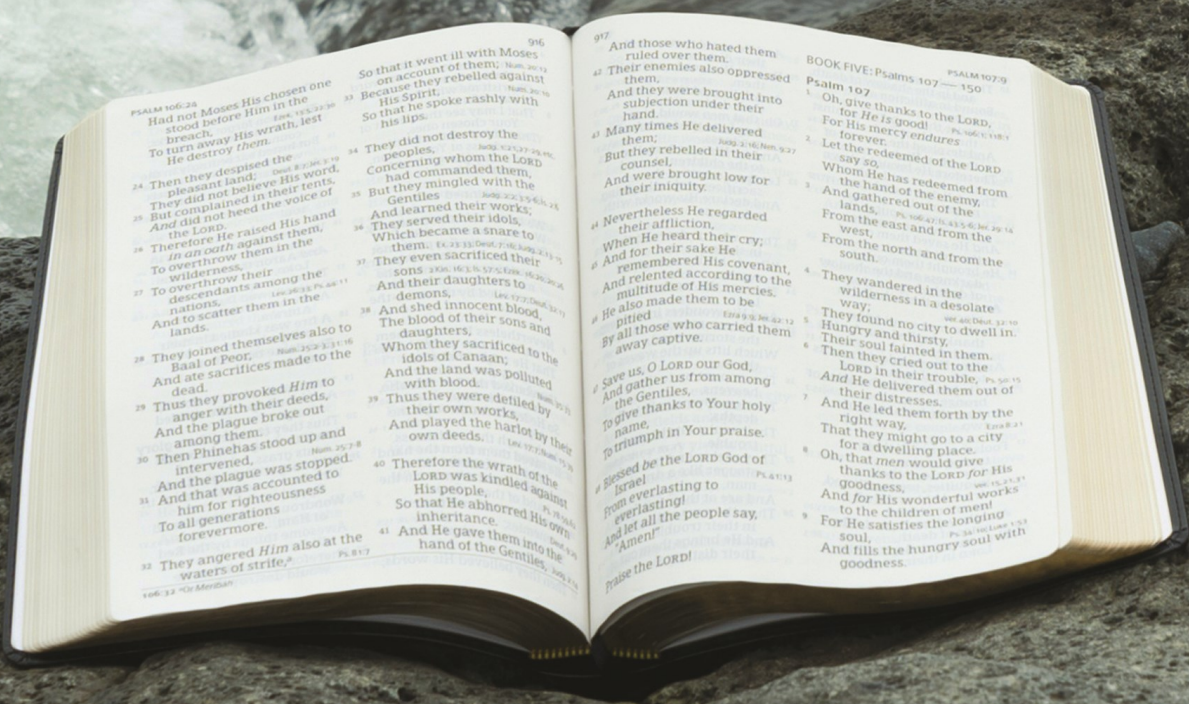 916
PSALM 106:24
Had not Moses His chosen one
stood before Him in the
breach,
To turn away His wrath, lest
He destroy them.
24 Then they despised the
pleasant land;
They did not believe His word,
25 But complained in their tents,
And did not heed the voice of
the LORD.
26 Therefore He raised His hand
in an oath against them,
To overthrow them in the
wilderness,
27 To overthrow their
descendants among the
nations,
And to scatter them in the
lands.
28 They joined themselves also to
Baal of Peor,
And ate sacrifices made to the
dead.
29 Thus they provoked Him to
anger with their deeds,
And the plague broke out
among them.
30 Then Phinehas stood up and
intervened, Num. 25:7-8
And the plague was stopped.
31 And that was accounted to
him for righteousness
To all generations
forevermore.
32 They angered Him also at the
waters of strife,ª Ps. 81:7
106:32 ªOr Meribah
So that it went ill with Moses
on account of them;
33 Because they rebelled against
His Spirit,
So that he spoke rashly with
his lips.
34 They did not destroy the
peoples,
Concerning whom the LORD
had commanded them,
35 But they mingled with the
Gentiles
And learned their works;
36 They served their idols,
Which became a snare to
them.
37 They even sacrificed their
sons
And their daughters to
demons,
38 And shed innocent blood,
The blood of their sons and
daughters,
Whom they sacrificed to the
idols of Canaan;
And the land was polluted
with blood.
39 Thus they were defiled by
their own works,
And played the harlot by their
own deeds.
40 Therefore the wrath of the
LORD was kindled against
His people,
So that He abhorred His own
inheritance.
41 And He gave them into the
hand of the Gentiles,
917
And those who hated them
ruled over them.
42 Their enemies also oppressed
them,
And they were brought into
subjection under their
hand.
43 Many times He delivered
them;
But they rebelled in their
counsel,
And were brought low for
their iniquity.
44 Nevertheless He regarded
their affliction,
When He heard their cry;
45 And for their sake He
remembered His covenant,
And relented according to the
multitude of His mercies.
46 He also made them to be
pitied
By all those who carried them
away captive.
47 Save us, O LORD our God,
And gather us from among
the Gentiles,
To give thanks to Your holy
name,
To triumph in Your praise.
48 Blessed be the LORD God of
Israel Ps. 41:13
From everlasting to
everlasting!
And let all the people say,
"Amen!"
Praise the LORD!
PSALM 107:9
BOOK FIVE: Psalms 107—150
Psalm 107
1 Oh, give thanks to the LORD,
for He is good!
For His mercy endures
forever.
2 Let the redeemed of the LORD
say so,
Whom He has redeemed from
the hand of the enemy,
3 And gathered out of the
lands,
From the east and from the
west,
From the north and from the
south.
4 They wandered in the
wilderness in a desolate
way;
They found no city to dwell in.
5 Hungry and thirsty,
Their soul fainted in them.
6 Then they cried out to the
LORD in their trouble, Ps. 50:15
And He delivered them out of
their distresses.
7 And He led them forth by the
right way, Ezra 8:21
That they might go to a city
for a dwelling place.
8 Oh, that men would give
thanks to the LORD for His
goodness,
And for His wonderful works
to the children of men!
9 For He satisfies the longing
soul,
And fills the hungry soul with
goodness.